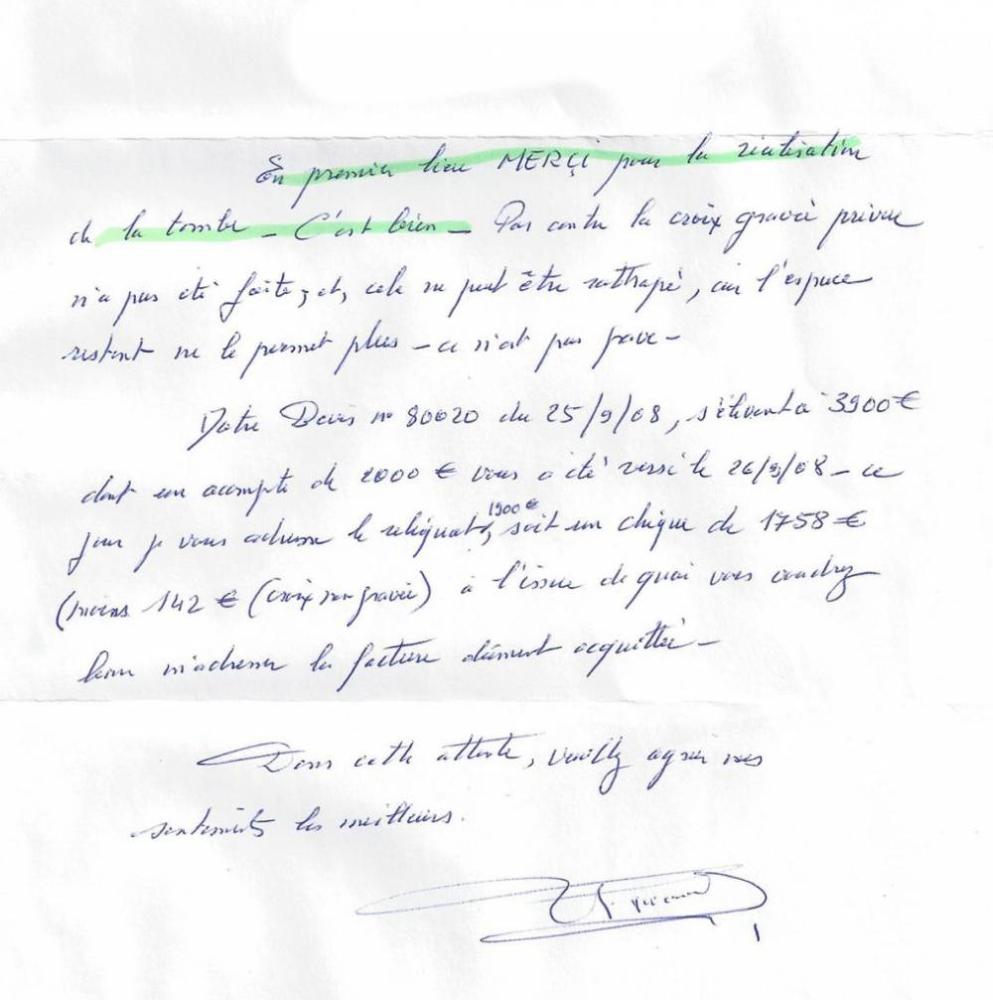 En premier lieu MERÇI pour la réalisation
de la tombe _ C'est bien _ Par contre la croix gravée prévue
n'a pas été faite, et, cela ne peut être rattrapé, car l'espace
restant ne le permet plus - ce n'est pas grave -
Votre Devis n° 80020 du 25/9/08, s'élevant à 3900 €
dont un acompte de 2000 € vous a été versé le 26/9/08 - ce
jour je vous adresse le reliquat, 1900 € soit un chèque de 1758 €
(moins 142 € (croix non gravée) à l'issue de quoi vous voudrez
bien m'adresser la facture dûment acquittée -
Dans cette attente, veuillez agréer mes
sentiments les meilleurs.